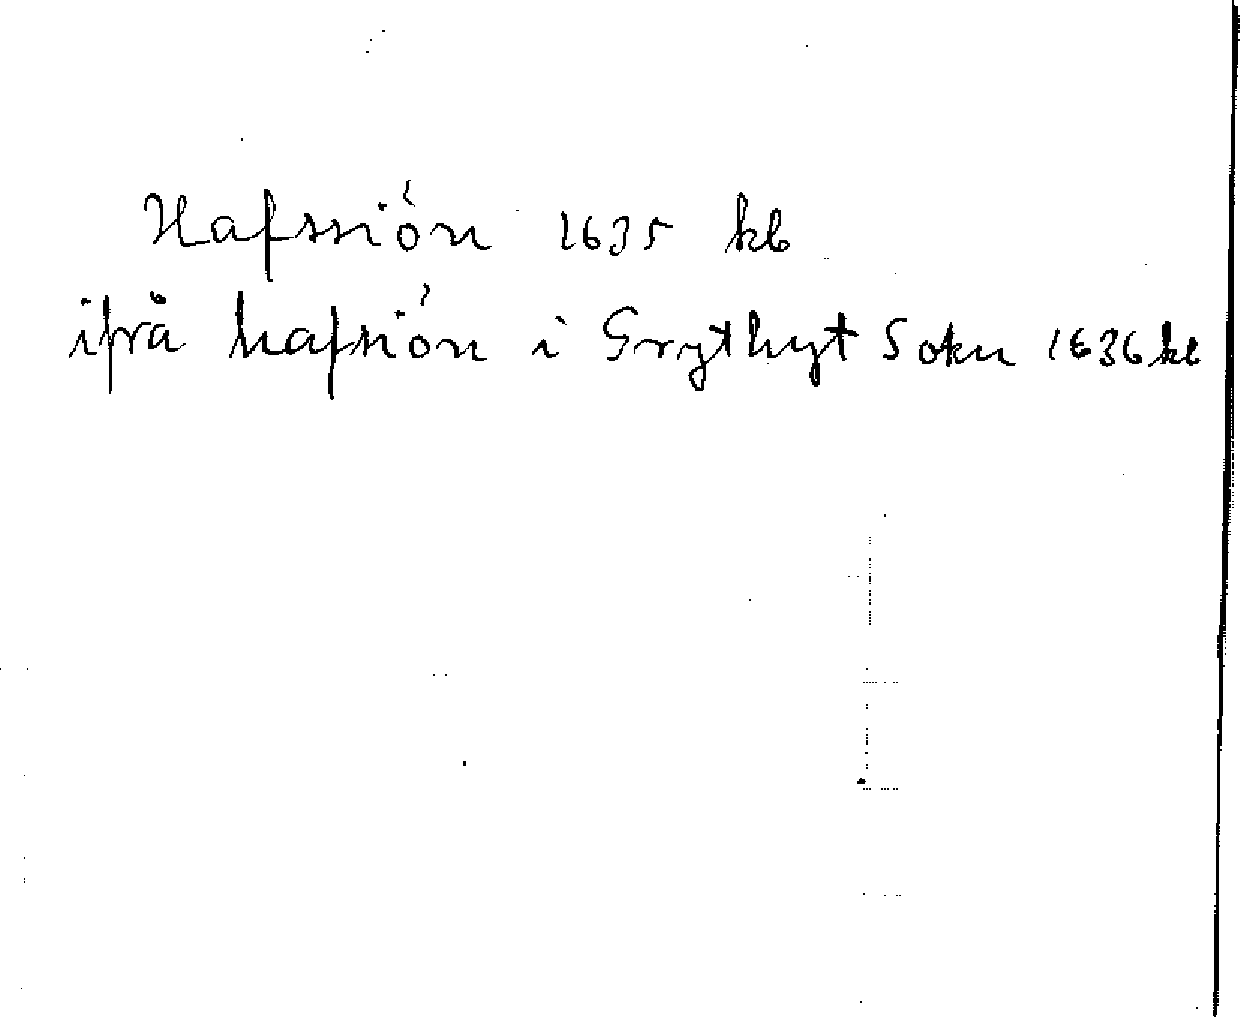 Hafssión 1635 kb
ifrå hafsión i Grythyt Sokn 1636 kb